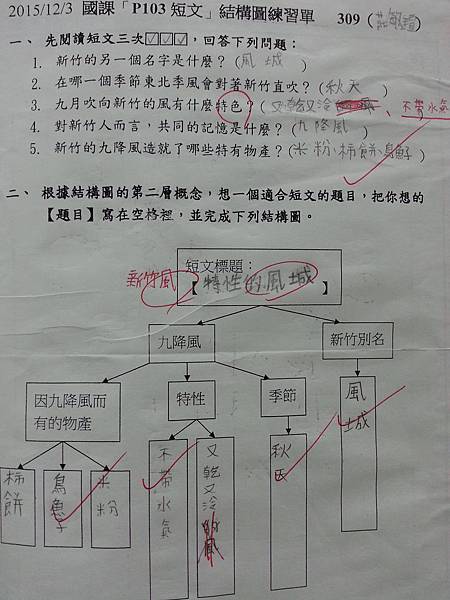 2015/12/3 國課「P103 短文」結構圖練習單 309 ( )
一、先閱讀短文三次☑☑☑,回答下列問題:
1. 新竹的另一個名字是什麼?(風城)
2. 在哪一個季節東北季風會對著新竹直吹?(秋天)
3. 九月吹向新竹的風有什麼特色?(又乾又冷、不帶水氣
4. 對新竹人而言,共同的記憶是什麼?(九降風)
5. 新竹的九降風造就了哪些特有物產?(米粉、柿餅、烏魚子)
二、根據結構圖的第二層概念,想一個適合短文的題目,把你想的
【題目】寫在空格裡,並完成下列結構圖。
短文標題:
新竹風
【特性的風城】
九降風
新竹別名
因九降風而
有的物產
特性
季節
風城
柿餅
烏魚子
米粉
不帶水氣
又乾又冷的風
秋天